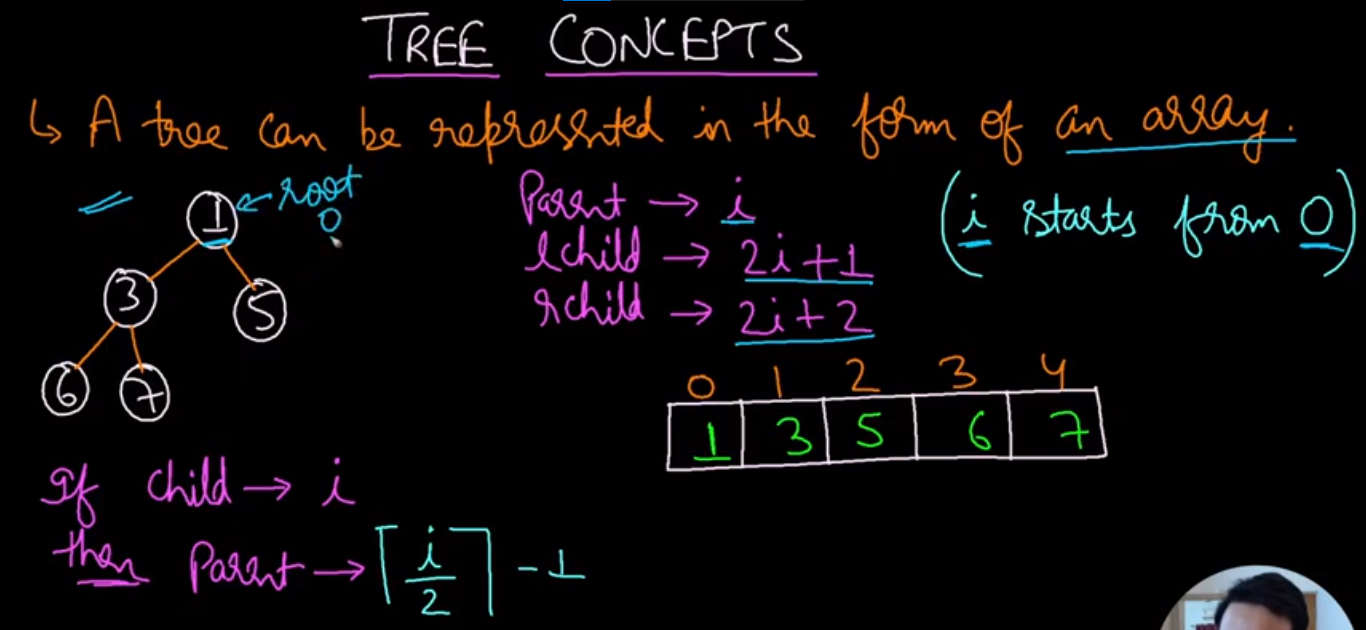 TREE CONCEPTS
↳ A tree can be represnted in the form of an array.
1 ← root
0
3
5
6
7
Parent → i
lchild → 2i+1
rchild → 2i+2
(i starts from 0)
0 1 2 3 4
1 3 5 6 7
If child → i
then Parent → ⌈i/2⌉ - 1